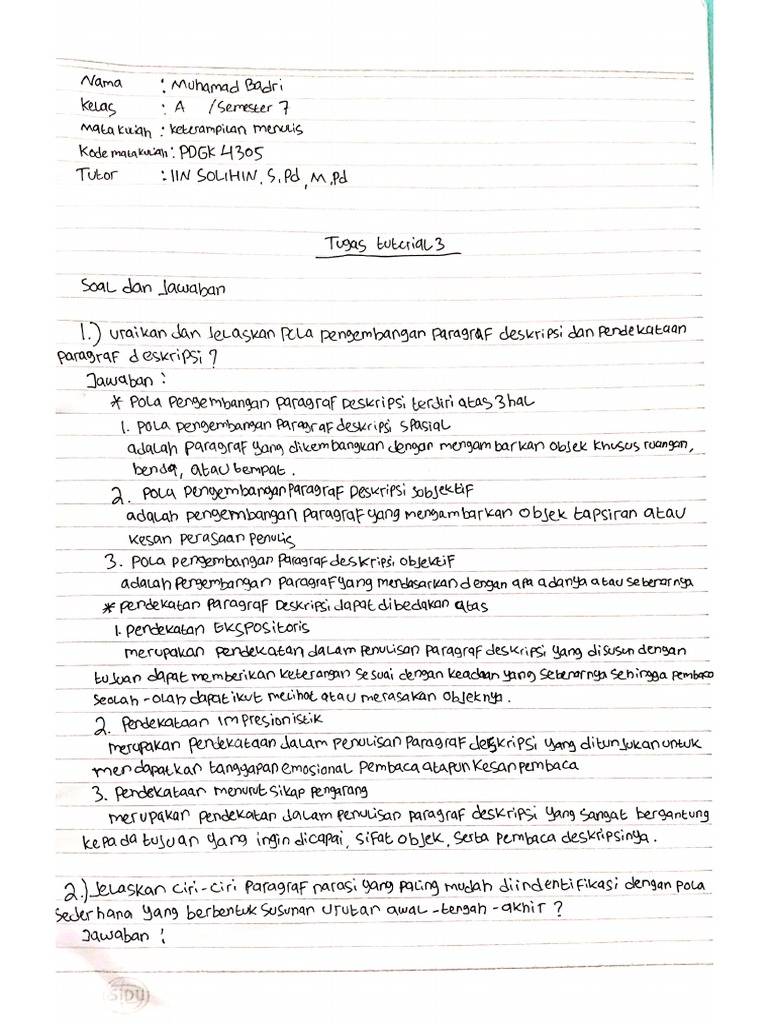 Nama : Muhamad Badri
Kelas : A / Semester 7
Mata kuliah : keterampilan menulis
Kode mata kuliah : PDGK 4305
Tutor : IIN SOLIHIN, S.Pd, M.Pd
Tugas tutorial 3
Soal dan Jawaban
1.) uraikan dan Jelaskan Pola pengembangan paragraf deskripsi dan pendekataan
paragraf deskripsi ?
Jawaban :
* Pola Pengembangan Paragraf Deskripsi terdiri atas 3 hal
1. Pola pengembangan Paragraf deskripsi spasial
adalah paragraf yang dikembangkan dengan mengambarkan objek khusus ruangan,
benda, atau tempat.
2. Pola Pengembangan Paragraf Deskripsi sobjektif
adalah pengembangan paragraf yang mengambarkan objek tapsiran atau
kesan perasaan penulis
3. Pola pengembangan Paragraf deskripsi objektif
adalah pengembangan paragraf yang mendasarkan dengan apa adanya atau sebenarnya
* Pendekatan Paragraf Deskripsi dapat dibedakan atas
1. Pendekatan EKSPOSitoris
merupakan pendekatan dalam penulisan Paragraf deskripsi yang disusun dengan
tujuan dapat memberikan keterangan sesuai dengan keadaan yang sebenarnya sehingga pembaca
seolah-olah dapat ikut melihat atau merasakan objeknya.
2. Pendekataan Impresionistik
merupakan Pendekataan dalam penulisan paragraf deskripsi yang ditunjukan untuk
mendapatkan tanggapan emosional pembaca atapun kesan pembaca
3. Pendekataan menurut sikap pengarang
merupakan pendekatan dalam penulisan paragraf deskripsi yang sangat bergantung
kepada tujuan yang ingin dicapai, sifat objek, serta pembaca deskripsinya.
2.) Jelaskan ciri-ciri paragraf narasi yang paling mudah diindentifikasi dengan pola
sederhana yang berbentuk susunan urutan awal-tengah-akhir ?
Jawaban :
SiDU